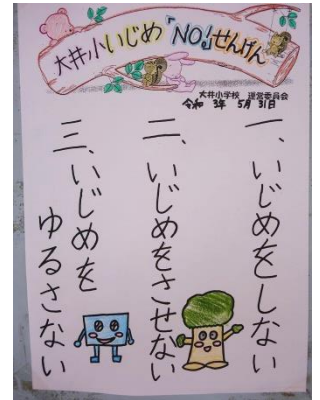 大井小いじめ「NO!」せんげん
大井小学校 運営委員会
令和 3年 5月 31日
一、いじめをしない
二、いじめをさせない
三、いじめを
ゆるさない